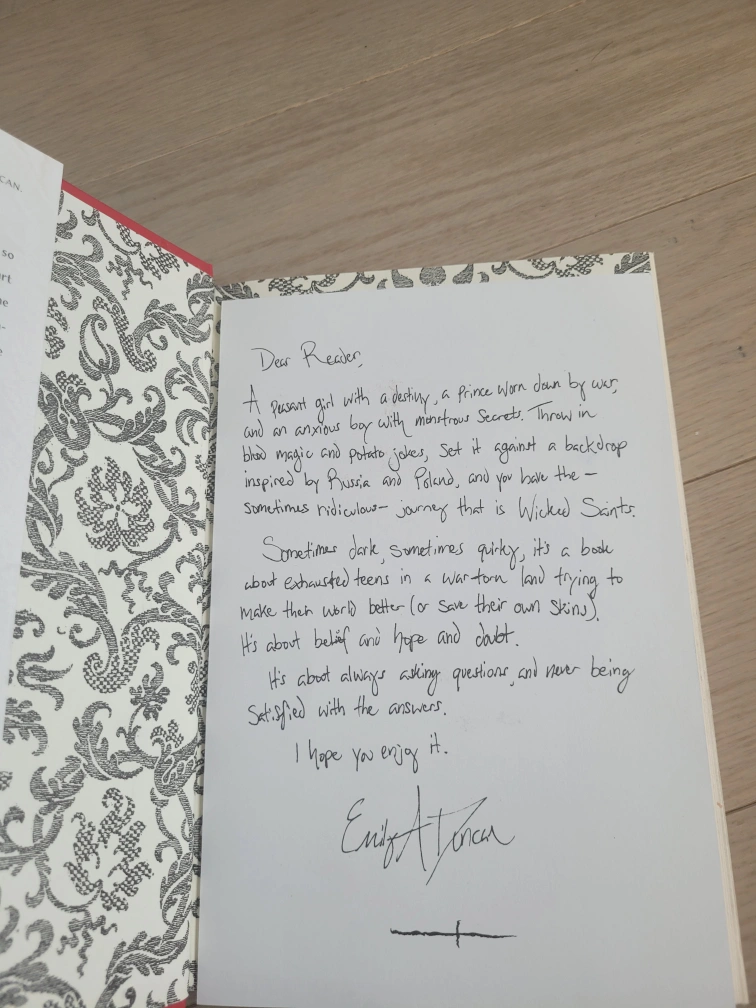 CAN.
so
Dear Reader,
A peasant girl with a destiny, a prince worn down by war,
and an anxious boy with monstrous secrets. Throw in
blood magic and potato jokes, set it against a backdrop
inspired by Russia and Poland, and you have the –
sometimes ridiculous – journey that is Wicked Saints.
Sometimes dark, sometimes quirky, it's a book
about exhausted teens in a war-torn land trying to
make their world better (or save their own skins).
It's about belief and hope and doubt.
It's about always asking questions, and never being
satisfied with the answers.
I hope you enjoy it.
Emily A Duncan